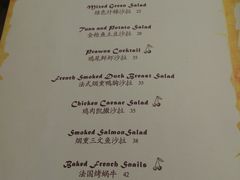 Mixed Green Salad
绿色什锦沙拉 25
Tuna and Potato Salad
金枪鱼土豆沙拉 28
Prawns Cocktail
鸡尾鲜虾沙拉 35
French Smoked Duck Breast Salad
法式烟熏鸭胸沙拉
Chicken Caesar Salad
鸡肉凯撒沙拉 35
Smoked Salmon Salad
烟熏三文鱼沙拉 38
Baked French Snails
法国烤蜗牛 42